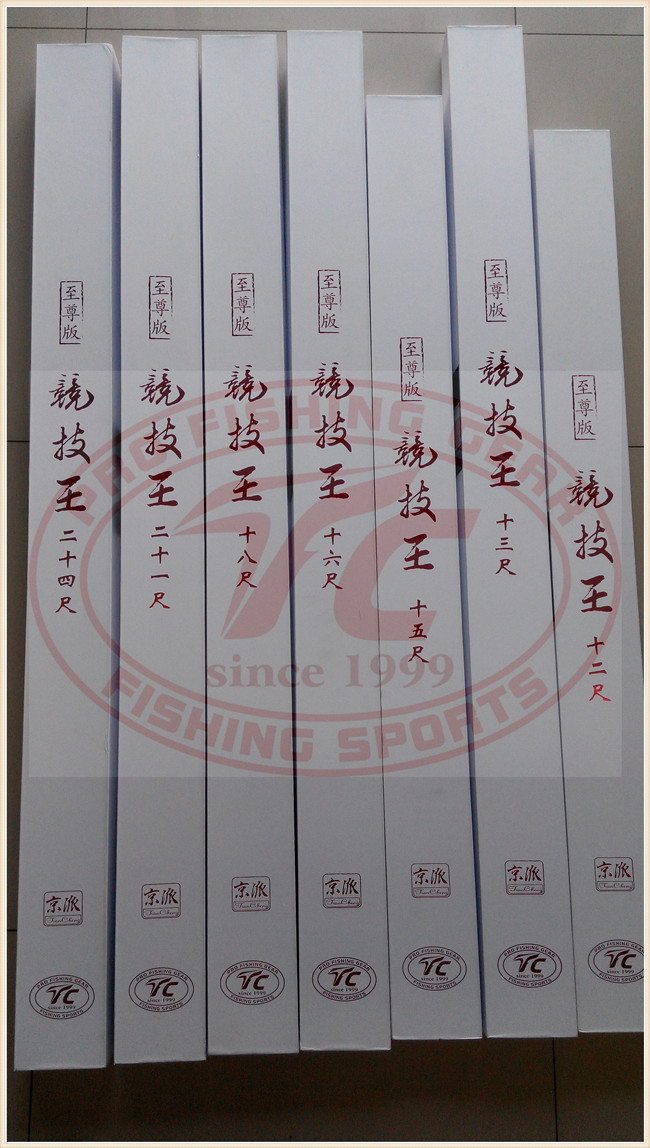 至尊版
競技王
二十四尺
京派
PRO FISHING GEAR
TC
since 1999
FISHING SPORTS
至尊版
競技王
二十一尺
京派
PRO FISHING GEAR
TC
since 1999
FISHING SPORTS
至尊版
競技王
十八尺
京派
PRO FISHING GEAR
TC
since 1999
FISHING SPORTS
至尊版
競技王
十六尺
京派
PRO FISHING GEAR
TC
since 1999
FISHING SPORTS
至尊版
競技王
十五尺
京派
PRO FISHING GEAR
TC
since 1999
FISHING SPORTS
至尊版
競技王
十三尺
京派
PRO FISHING GEAR
TC
since 1999
FISHING SPORTS
至尊版
競技王
十二尺
京派
PRO FISHING GEAR
TC
since 1999
FISHING SPORTS
PRO FISHING GEAR
TC
since 1999
FISHING SPORTS